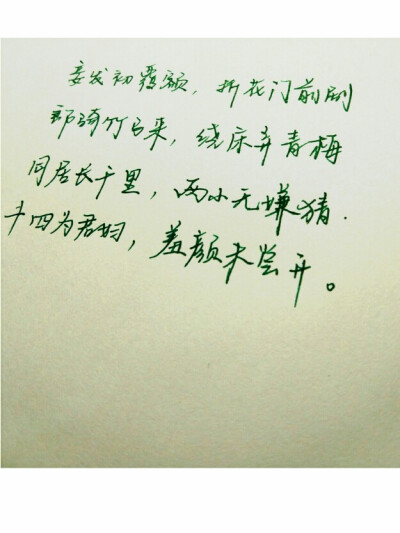 妾发初覆额，折花门前剧
郎骑竹马来，绕床弄青梅
同居长千里，两小无嫌猜.
十四为君妇，羞颜未尝开。